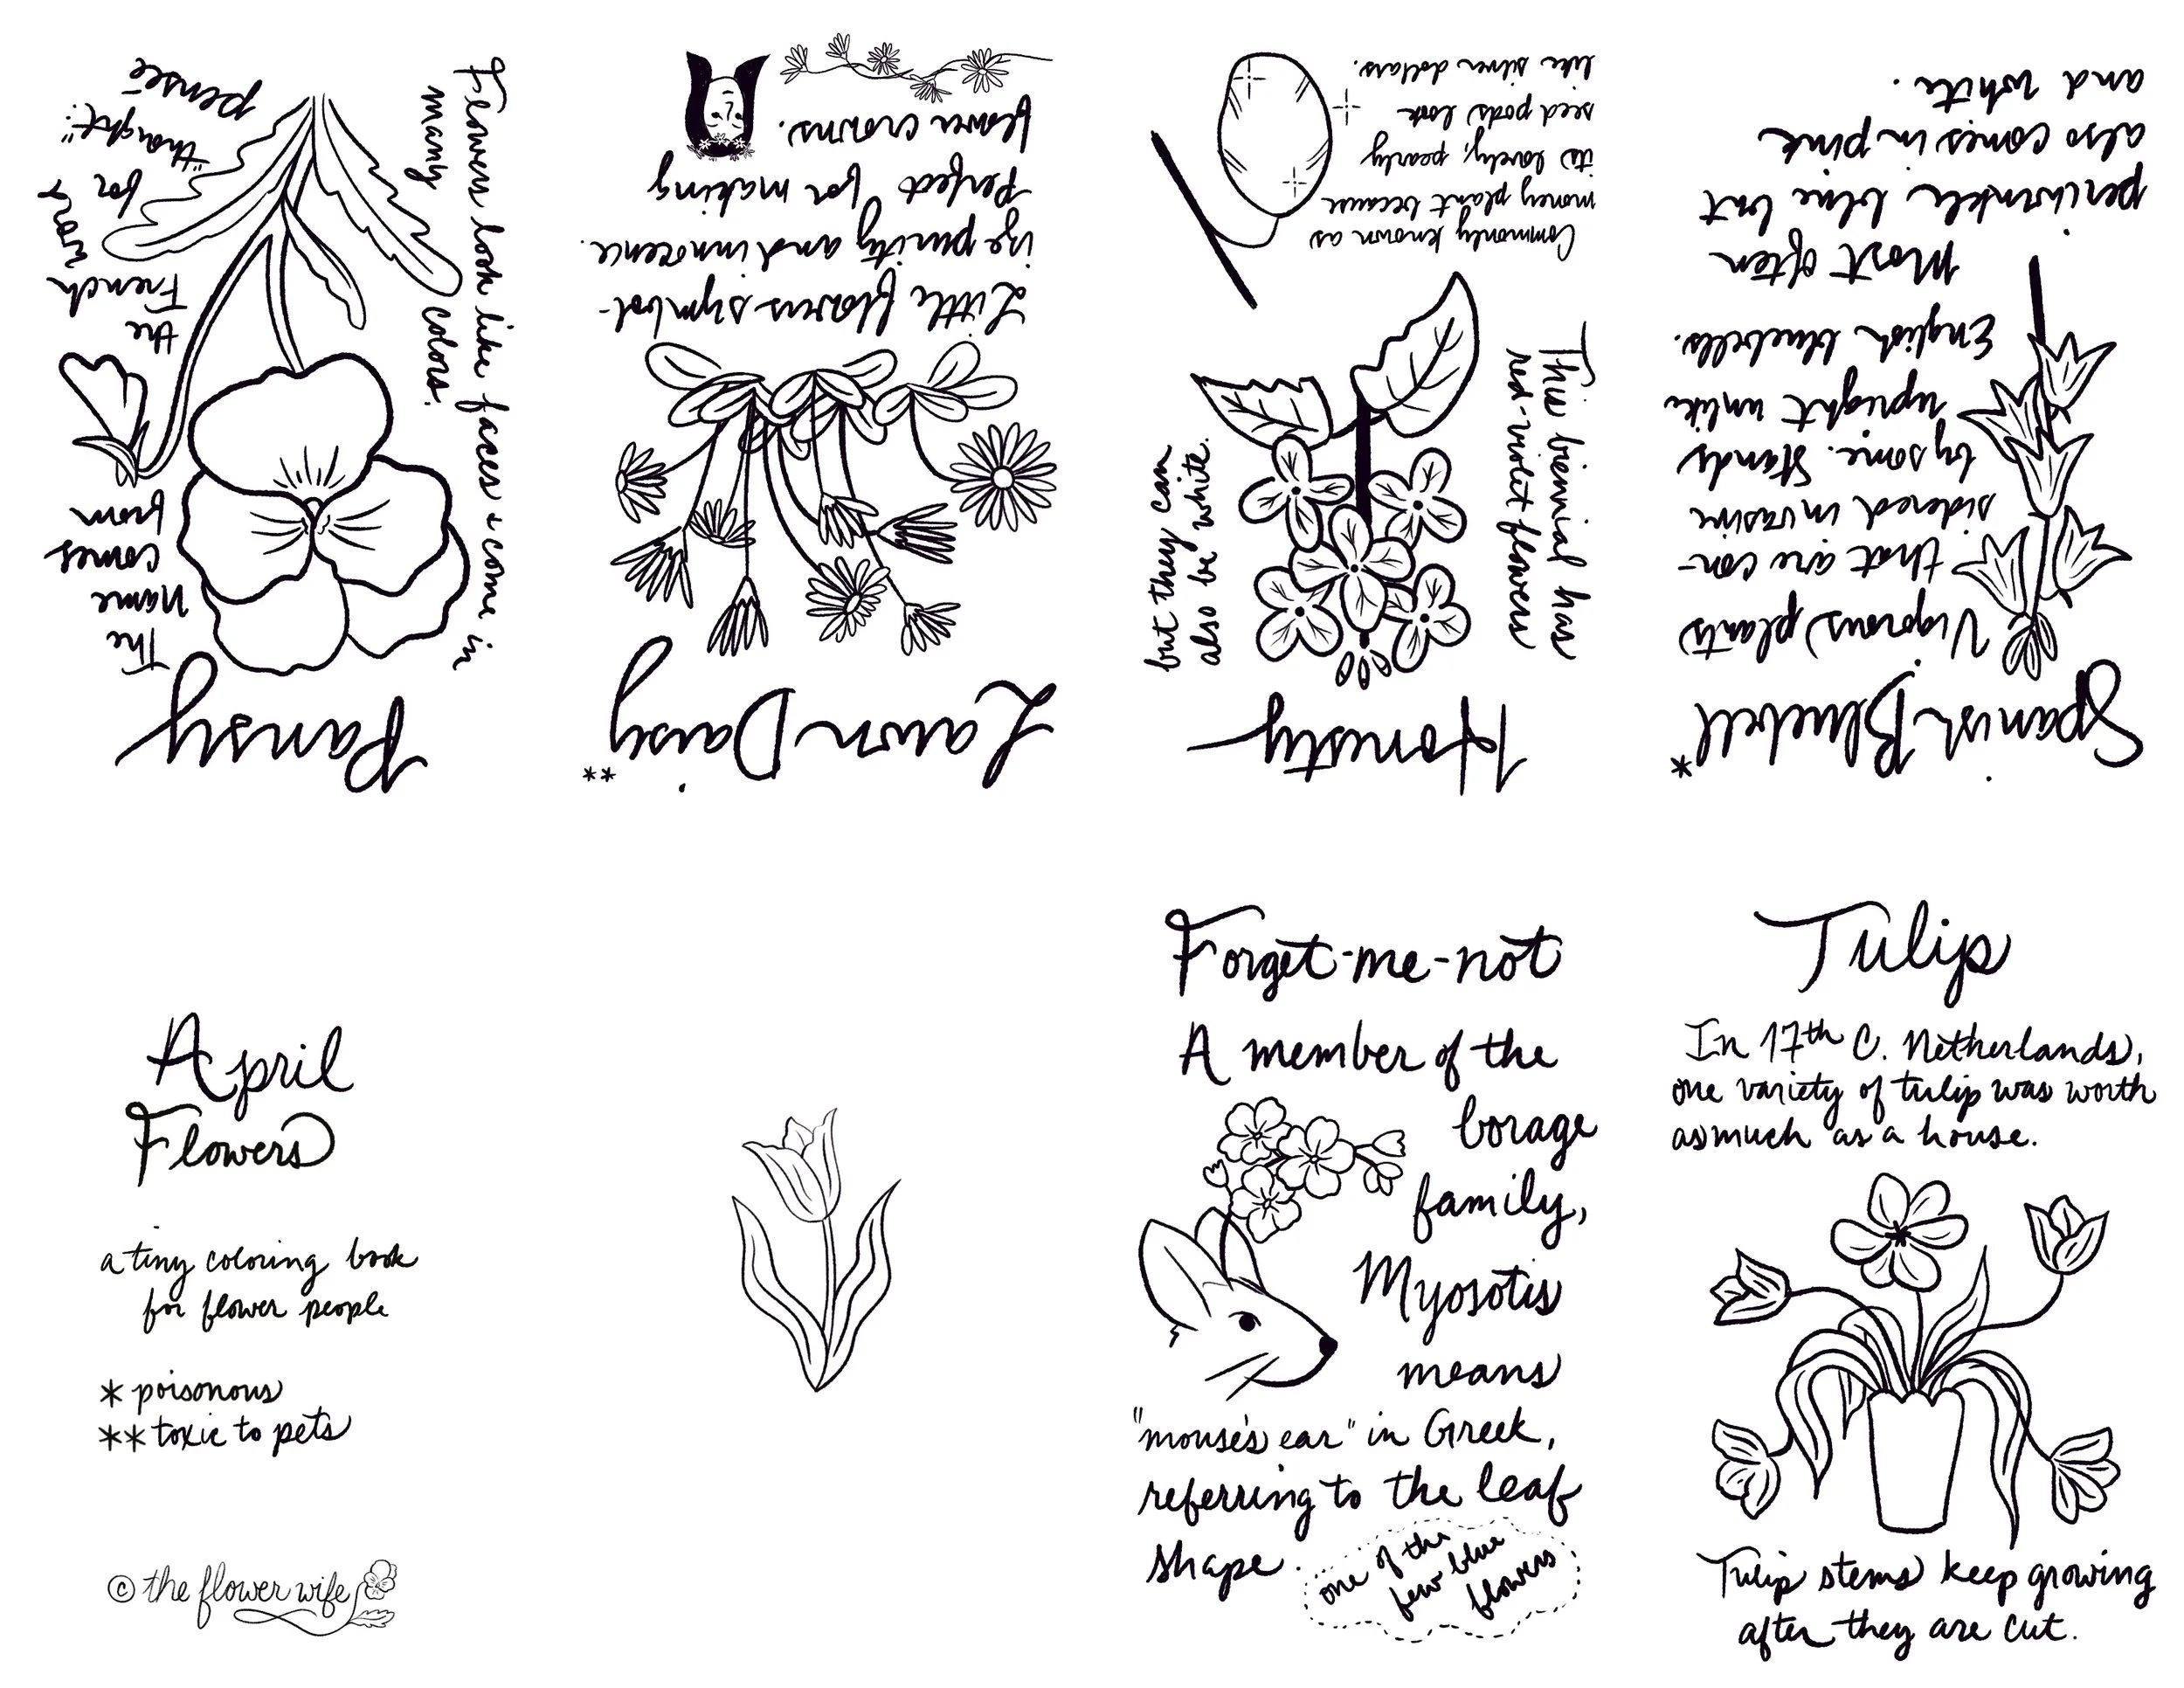 April
Flowers
a tiny coloring book
for flower people
* poisonous
** toxic to pets
© the flower wife
Forget-me-not
A member of the
borage
family,
Myosotis
means
"mouse's ear" in Greek,
referring to the leaf
shape.
one of the
few blue
flowers
Tulip
In 17th C. Netherlands,
one variety of tulip was worth
as much as a house.
Tulip stems keep growing
after they are cut.
Spanish Bluebell*
Vigorous plants
that are con-
sidered invasive
by some. Stands
upright unlike
English bluebells.
Most often
periwinkle blue but
also comes in pink
and white.
Honesty
This biennial has
red-violet flowers
but they can
also be white.
Commonly known as
money plant because
its lovely, pearly
seed pods look
like silver dollars.
Lawn Daisy**
Little flowers symbol-
ize purity and innocence.
Perfect for making
flower crowns.
Pansy
The
name
comes
from
the
French
word
for
"thought":
pensé
Flowers look like faces + come in
many colors.